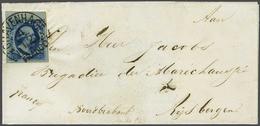 Aan
Den Heer Jacobs
Brigadier der Marechaussé
franco Noordbrabant Rijsbergen